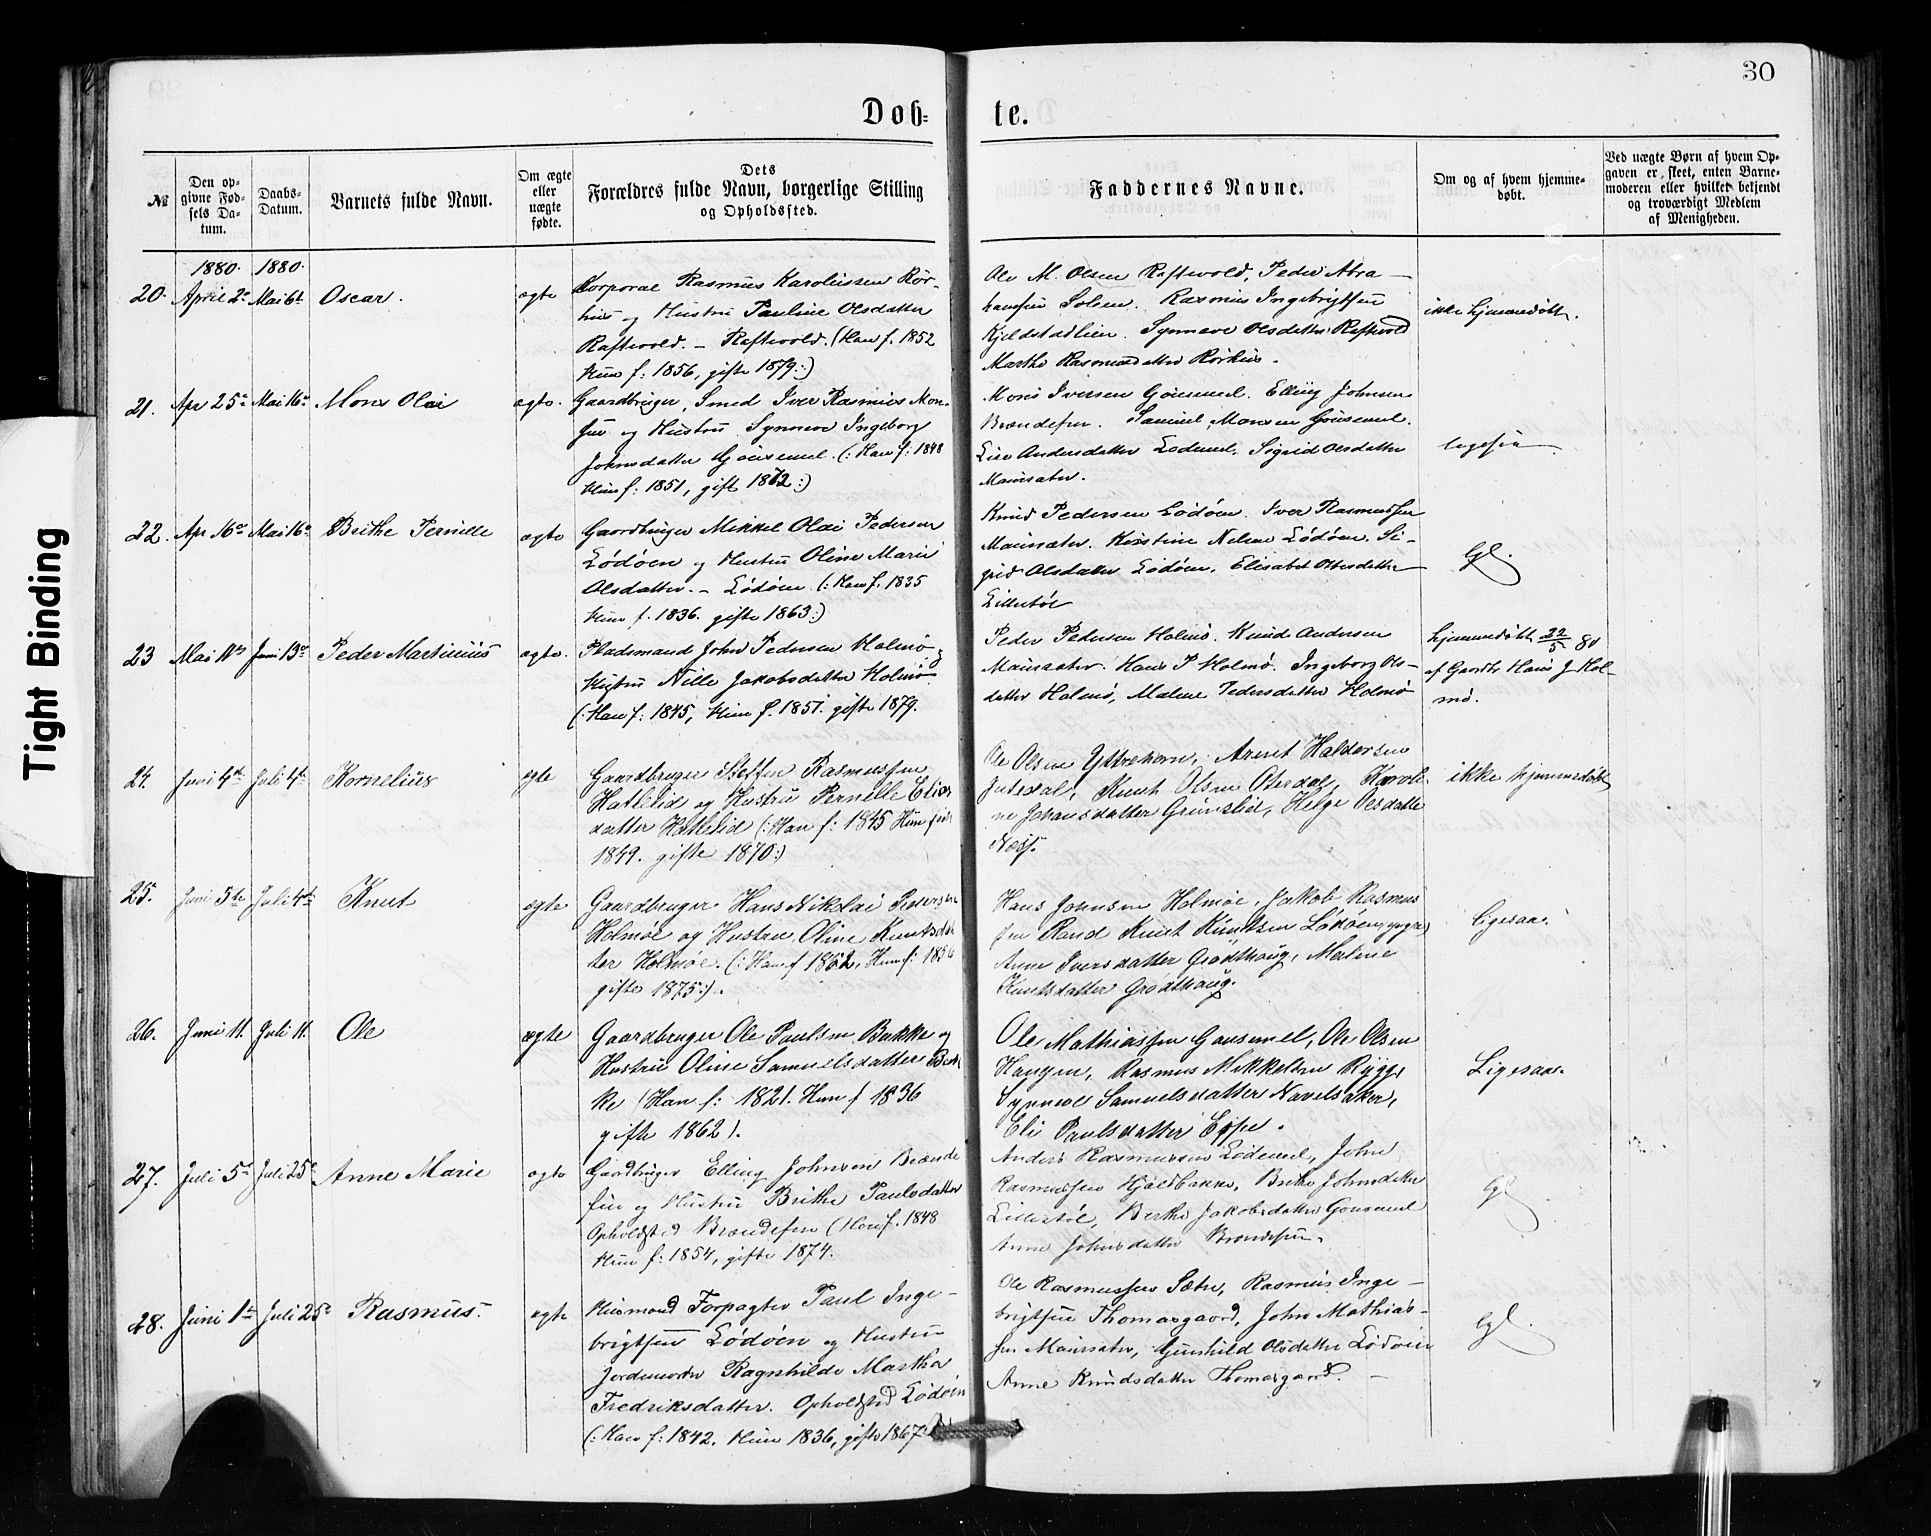 30
Døb-
te.
№
Den op-
givne Fød-
sels Da-
tum.
Daabs-
Datum.
Barnets fulde Navn.
Om ægte
eller
uægte
fødte.
Dets
Forældres fulde Navn, borgerlige Stilling
og Opholdssted.
Faddernes Navne.
Om og af hvem hjemme-
døbt.
Ved uægte Børn af hvem Op-
gaven er skeet, enten Barne-
moderen eller hvilket bekjendt
og troværdigt Medlem
af Menigheden.
1880. 1880.
20. April 2 Mai 6t Oscar. ægte
Korporal Rasmus Karolussen Rør-
hus og Hustru Pauline Olsdatter
Raftevold. – Raftevold. (Han f. 1852
Hun f: 1856, gifte 1879:)
Ole M. Olsen Raftevold, Peder Abra-
hamsen Solsen. Rasmus Ingebrigtsen
Kjeldstadlien. Synneve Olsdatter Raftevold
Marthe Rasmusdatter Rørhus.
ikke hjemmedøbt.
21. Apr 25 Mai 16 Mons Olai ægte.
Gaardbruger, Smed Iver Rasmus Mon-
sen og Hustru Synneve Ingeborg
Johnsdatter Gausemel. (: Han f: 1848
Hun f: 1851, gift 1872:)
Mons Iversen Gausemel. Elling Johnsen
Brændefur. Samuel Monsen Gausemel.
Lise Andersdatter Lodemel. Sigrid Olsdatter
Maursæter.
22. Apr 16 Mai 16 Brithe Pernille ægte
Gaardbruger Mikkel Olai Pedersen
Lødøen og Hustru Oline Marie
Olsdatter. – Lødøen (: Han f. 1835
Hun f. 1836. gifte 1863:)
Knud Pedersen Lødøen. Iver Rasmussen
Maursæter. Kirstine Nelsen Lødøen. Si-
grid Olsdatter Lødøen, Elisabet Olsdatter
Lillestøl
Lgl.
23 Mai 11 Juni 13 Peder Martinius ægte.
Pladsmand John Pedersen Holmø og
Hustru Nille Jakobsdatter Holmø
(: Han f: 1845, Hun f. 1851. gifte 1879.
Peder Pedersen Holmø. Knud Andersen
Maursæter. Hans P Holmø. Ingeborg Ols-
datter Holmø, Malene Pedersdatter Holmø
hjemmedøbt 22/5 80
af Gaardb. Hans J Hol-
mø.
24. Juni 4de Juli 4de Kornelius ægte
Gaardbruger Steffen Rasmussen
Hatlelid og Hustru Pernelle Elias
datter Hatlelid (: Han f: 1845 Hun født
1849. gifte 1870:)
Ole Olsen Yttrehorn, Arent Haldorsen
Knut Olsen Oterdal, Karoli-
ne Johansdatter Grønslid, Helge Olsdatter
Næss.
ikke hjemmedøbt
25. Juni 5te Juli 4de Knut ægte
Gaardbruger Hans Nikolai Petersen
Holmøe og Hustru Oline Knutsdat-
ter Holmøe. (: Han f 1862, Hun f: 1856
gifte 1875:).
Hans Johnsen Holmøe, Jakob Rasmus
sen Raud Knut Knutsen Løkøen yngre
Anne Iversdatter Grødthaug, Malene
Knutsdatter Grødthaug.
Ligesaa.
26. Juni 11. Juli 11. Ole ægte
Gaardbruger Ole Paulsen Bakke og
Hustru Oline Samuelsdatter Bak
ke (Han f: 1821. Hun f 1836
gifte 1862).
Ole Mathiassen Gausemel, Ole Olsen
Haugen, Rasmus Mikkelsen Rygg,
Synneve Samuelsdatter Navelsaker,
Eli Paulsdatter Eppe.
Ligesaa.
27. Juli 5 Juli 25 Anne Marie ægte
Gaardbruger Elling Johnsen Brænde
fur og Hustru Brithe Paulsdatter
Opholdsted Brændefur (Han f. 1848
Hun f: 1854, gifte 1874.
Anders Rasmussen Lødemel, John
Rasmussen Hjældbakke, Brithe Johnsdatter
Lillestøl, Berthe Jakobsdatter Gausemel
Anne Johnsdatter Brændefur.
Lgl
28. Juni 1te Juli 25 Rasmus. ægte
Husmand Forpagter Paul Inge-
brigtsen Lødøen og Hustru
Jordemoder Ragnhilde Martha
Fredriksdatter. Opholdsted Lødøen
(: Han f: 1842. Hun 1836, gifte 1867:)
Ole Rasmussen Sætre, Rasmus Inge-
brigtsen Thomasgaard, John Mathias-
sen Maursæter, Gunhild Olsdatter Lødøen
Anne Knudsdatter Thomasgaard.
Lgl.
Tight Binding